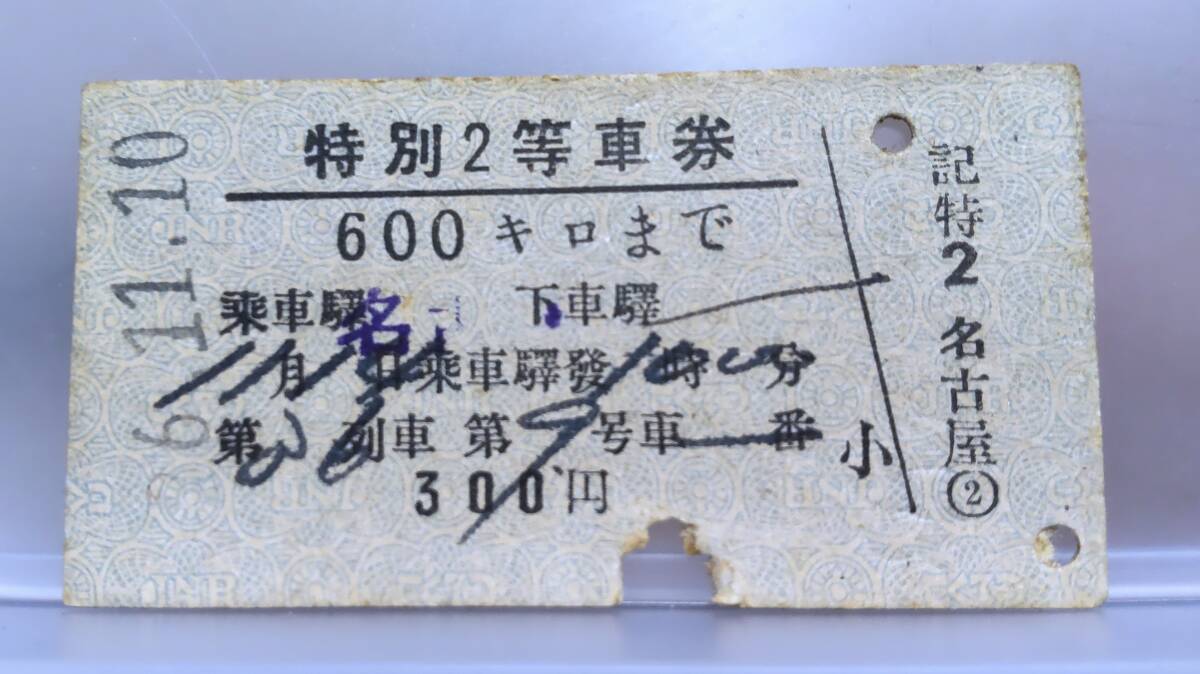 特別2等車券
600キロまで
乗車驛 名 下車驛
11月 日乗車驛發 時 分
第 列車 第9号車 番
300円
小
6.11.10
記特2名古屋②